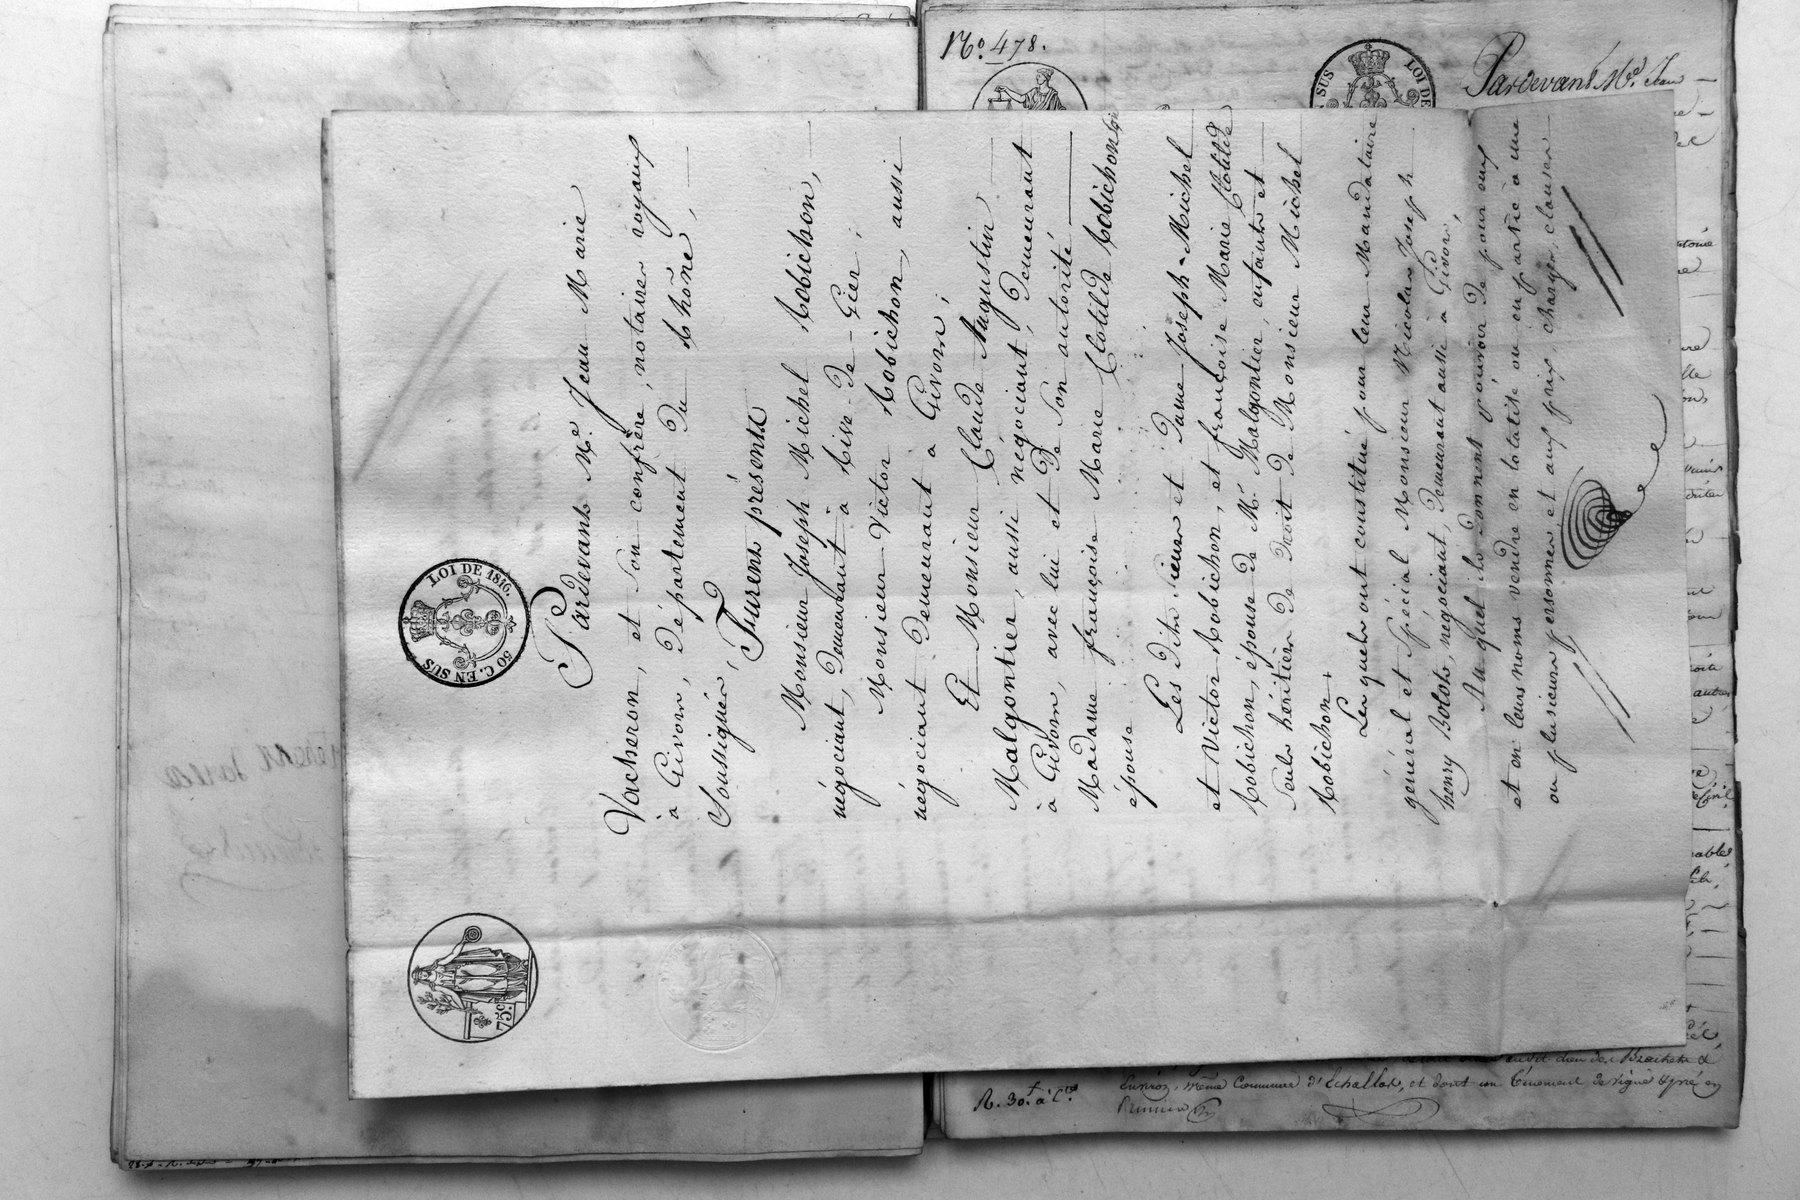 Pardevant Me. Jean Marie
Vacheron, et son confrère, notaires royaux
à Givors, département du Rhône,
soussignés,
Furent présents
Monsieur Joseph Michel Robichon,
négociant, demeurant à Rive-de-Gier;
Monsieur Victor Robichon, aussi
négociant demeurant à Givors;
Et Monsieur Claude Augustin
Malgontier, aussi négociant, demeurant
à Givors, avec lui et de son autorité
Madame françoise Marie Clotilde Robichon
épouse
Les dits sieurs et Dame Joseph-Michel
et Victor Robichon, et françoise Marie Clotilde
Robichon, épouse de Mr. Malgontier, enfants et
seuls héritiers de droit de Monsieur Michel
Robichon.
Lesquels ont constitué pour leur Mandataire
général et spécial Monsieur Nicolas Joseph
henry Bolot, négociant, demeurant aussi à Givors,
Auquel ils donnent pouvoir de pour eux
et en leurs noms vendre en totalité ou en partie à une
ou plusieurs personnes et aux prix, charges, clauses
LOI DE 1816.
50 C. EN SUS
75 c.
No. 478.
Pardevant Me. Jean
SUS
LOI DE
R. 30f. à Cts.
même Commune d'Echallas, et dont un tènement de vigne